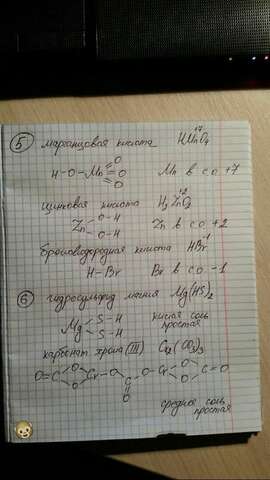 5 марганцовая кислота HMnO₄ +7
O
H-O-Mn=O Mn в со +7
O
цинковая кислота H₂ZnO₂ +2
O-H
Zn Zn в с о +2
O-H
бромоводородная кислота HBr -1
H-Br Br в со -1
6 гидросульфид магния Mg(HS)₂
S-H кислая соль
Mg простая
S-H
карбонат хрома (III) Cr₂(CO₃)₃
O=C O Cr-O O-Cr O C=O
O C O
O
средняя соль
простая